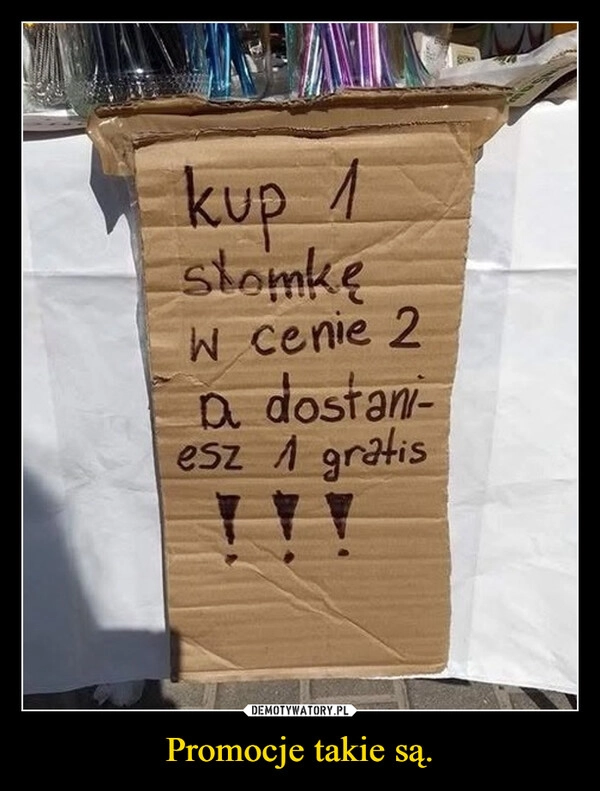 kup 1
słomkę
w cenie 2
a dostani-
esz 1 gratis
!!!
DEMOTYWATORY.PL
Promocje takie są.